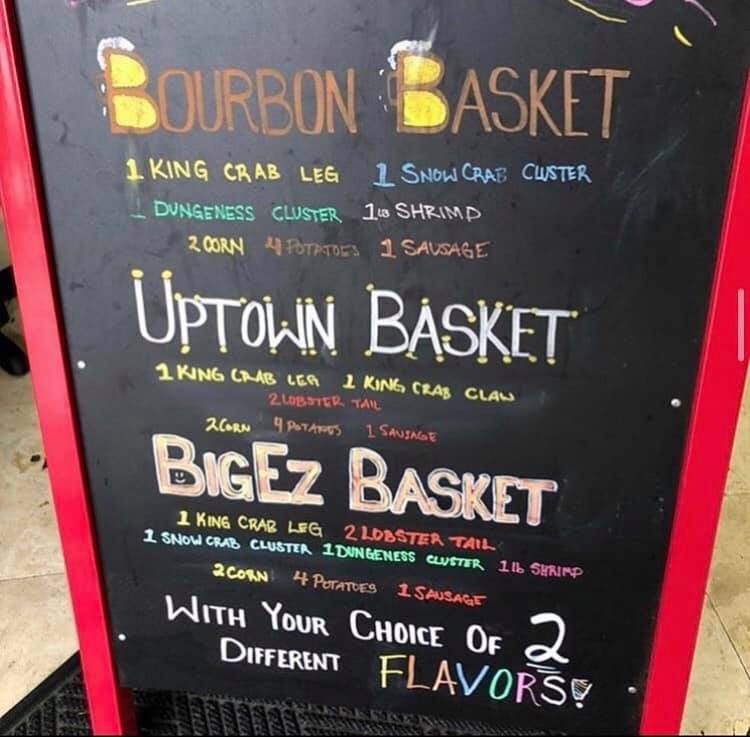 BOURBON BASKET
1 KING CRAB LEG 1 SNOW CRAB CLUSTER
1 DUNGENESS CLUSTER 1LB SHRIMP
2 CORN 4 POTATOES 1 SAUSAGE
UPTOWN BASKET
1 KING CRAB LEG 1 KING CRAB CLAW
2 LOBSTER TAIL
2 CORN 4 POTATOES 1 SAUSAGE
BIGEZ BASKET
1 KING CRAB LEG 2 LOBSTER TAIL
1 SNOW CRAB CLUSTER 1 DUNGENESS CLUSTER 1lb SHRIMP
2 CORN 4 POTATOES 1 SAUSAGE
WITH YOUR CHOICE OF 2
DIFFERENT FLAVORS!